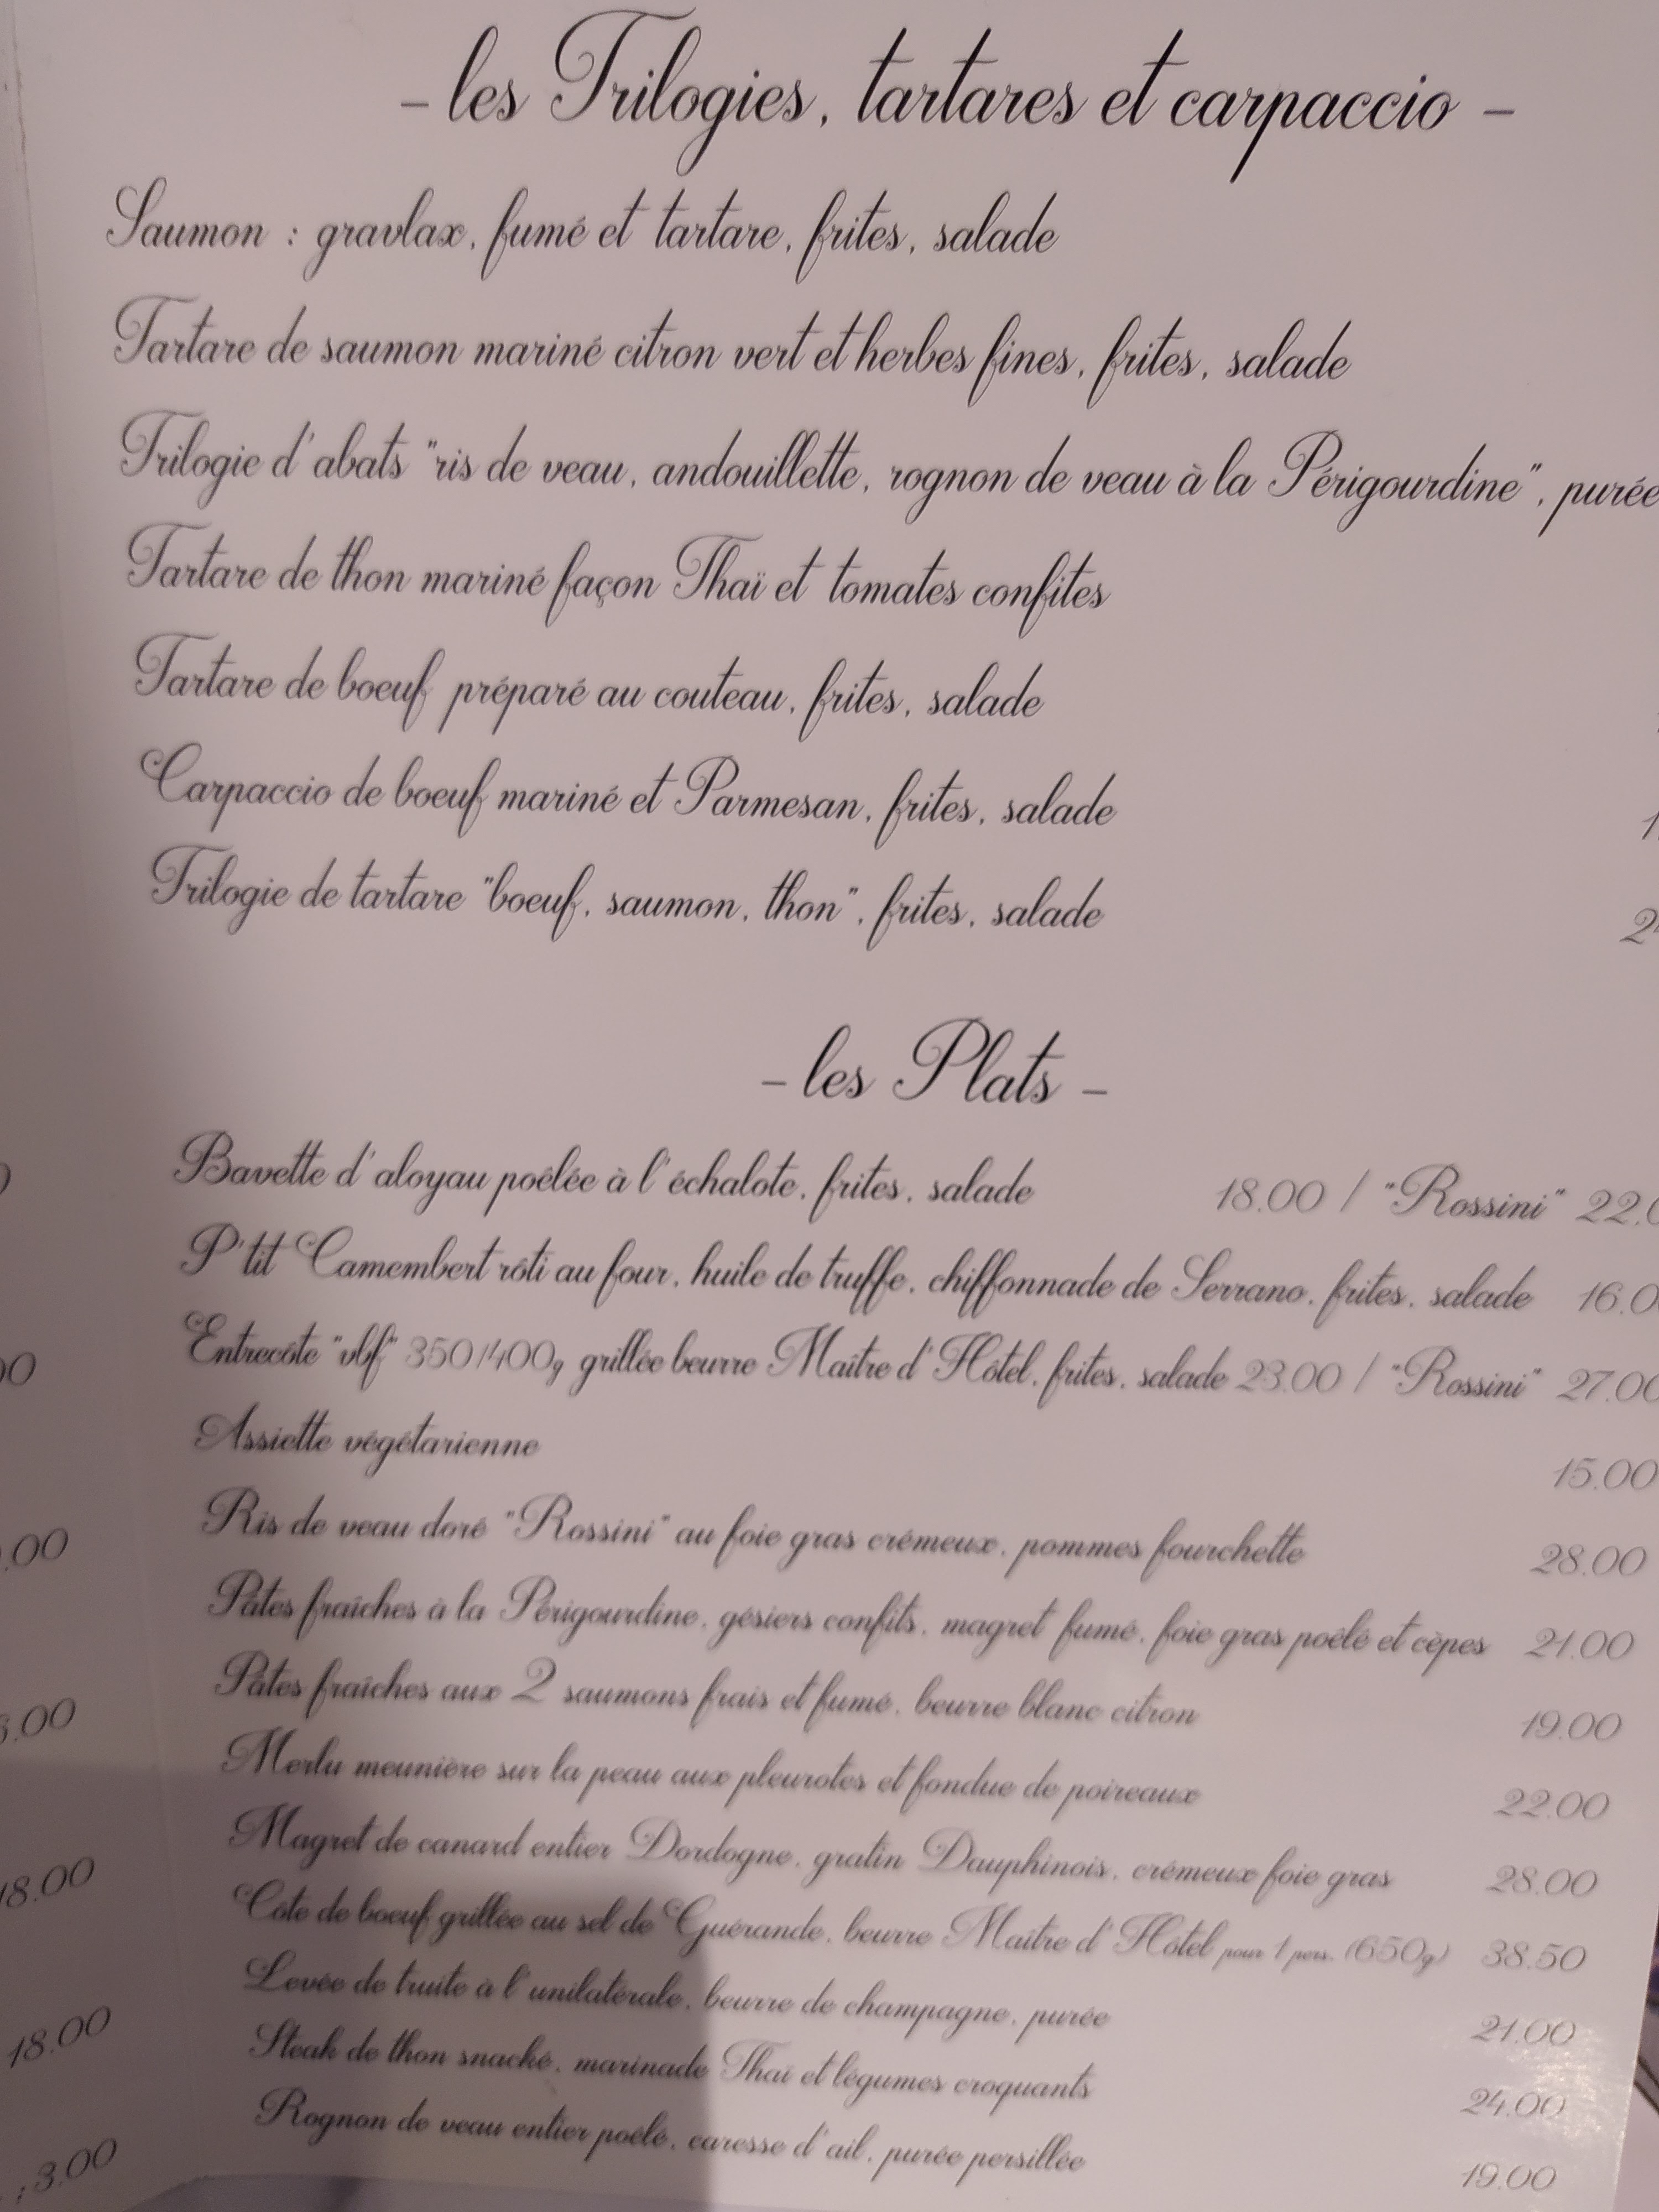 - les Trilogies, tartares et carpaccio -
Saumon : gravlax, fumé et tartare, frites, salade
Tartare de saumon mariné citron vert et herbes fines, frites, salade
Trilogie d'abats "ris de veau, andouillette, rognon de veau à la Périgourdine", purée
Tartare de thon mariné façon Thaï et tomates confites
Tartare de boeuf préparé au couteau, frites, salade
Carpaccio de boeuf mariné et Parmesan, frites, salade
Trilogie de tartare "boeuf, saumon, thon", frites, salade
- les Plats -
Bavette d'aloyau poêlée à l'échalote, frites, salade 18.00 / "Rossini" 22.0
P'tit Camembert rôti au four, huile de truffe, chiffonnade de Serrano, frites, salade 16.0
Entrecôte "vbf" 350/400g grillée beurre Maître d'Hôtel, frites, salade 23.00 / "Rossini" 27.00
Assiette végétarienne 15.00
Ris de veau doré "Rossini" au foie gras crémeux, pommes fourchette 28.00
Pâtes fraîches à la Périgourdine, gésiers confits, magret fumé, foie gras poêlé et cèpes 21.00
Pâtes fraîches aux 2 saumons frais et fumé, beurre blanc citron 19.00
Merlu meunière sur la peau aux pleurotes et fondue de poireaux 22.00
Magret de canard entier Dordogne, gratin Dauphinois, crémeux foie gras 28.00
Côte de boeuf grillée au sel de Guérande, beurre Maître d'Hôtel pour 1 pers. (650g) 38.50
Levée de truite à l'unilatérale, beurre de champagne, purée 21.00
Steak de thon snacké, marinade Thaï et légumes croquants 24.00
Rognon de veau entier poêlé, caresse d'ail, purée persillée 19.00
18.00
18.00
3.00